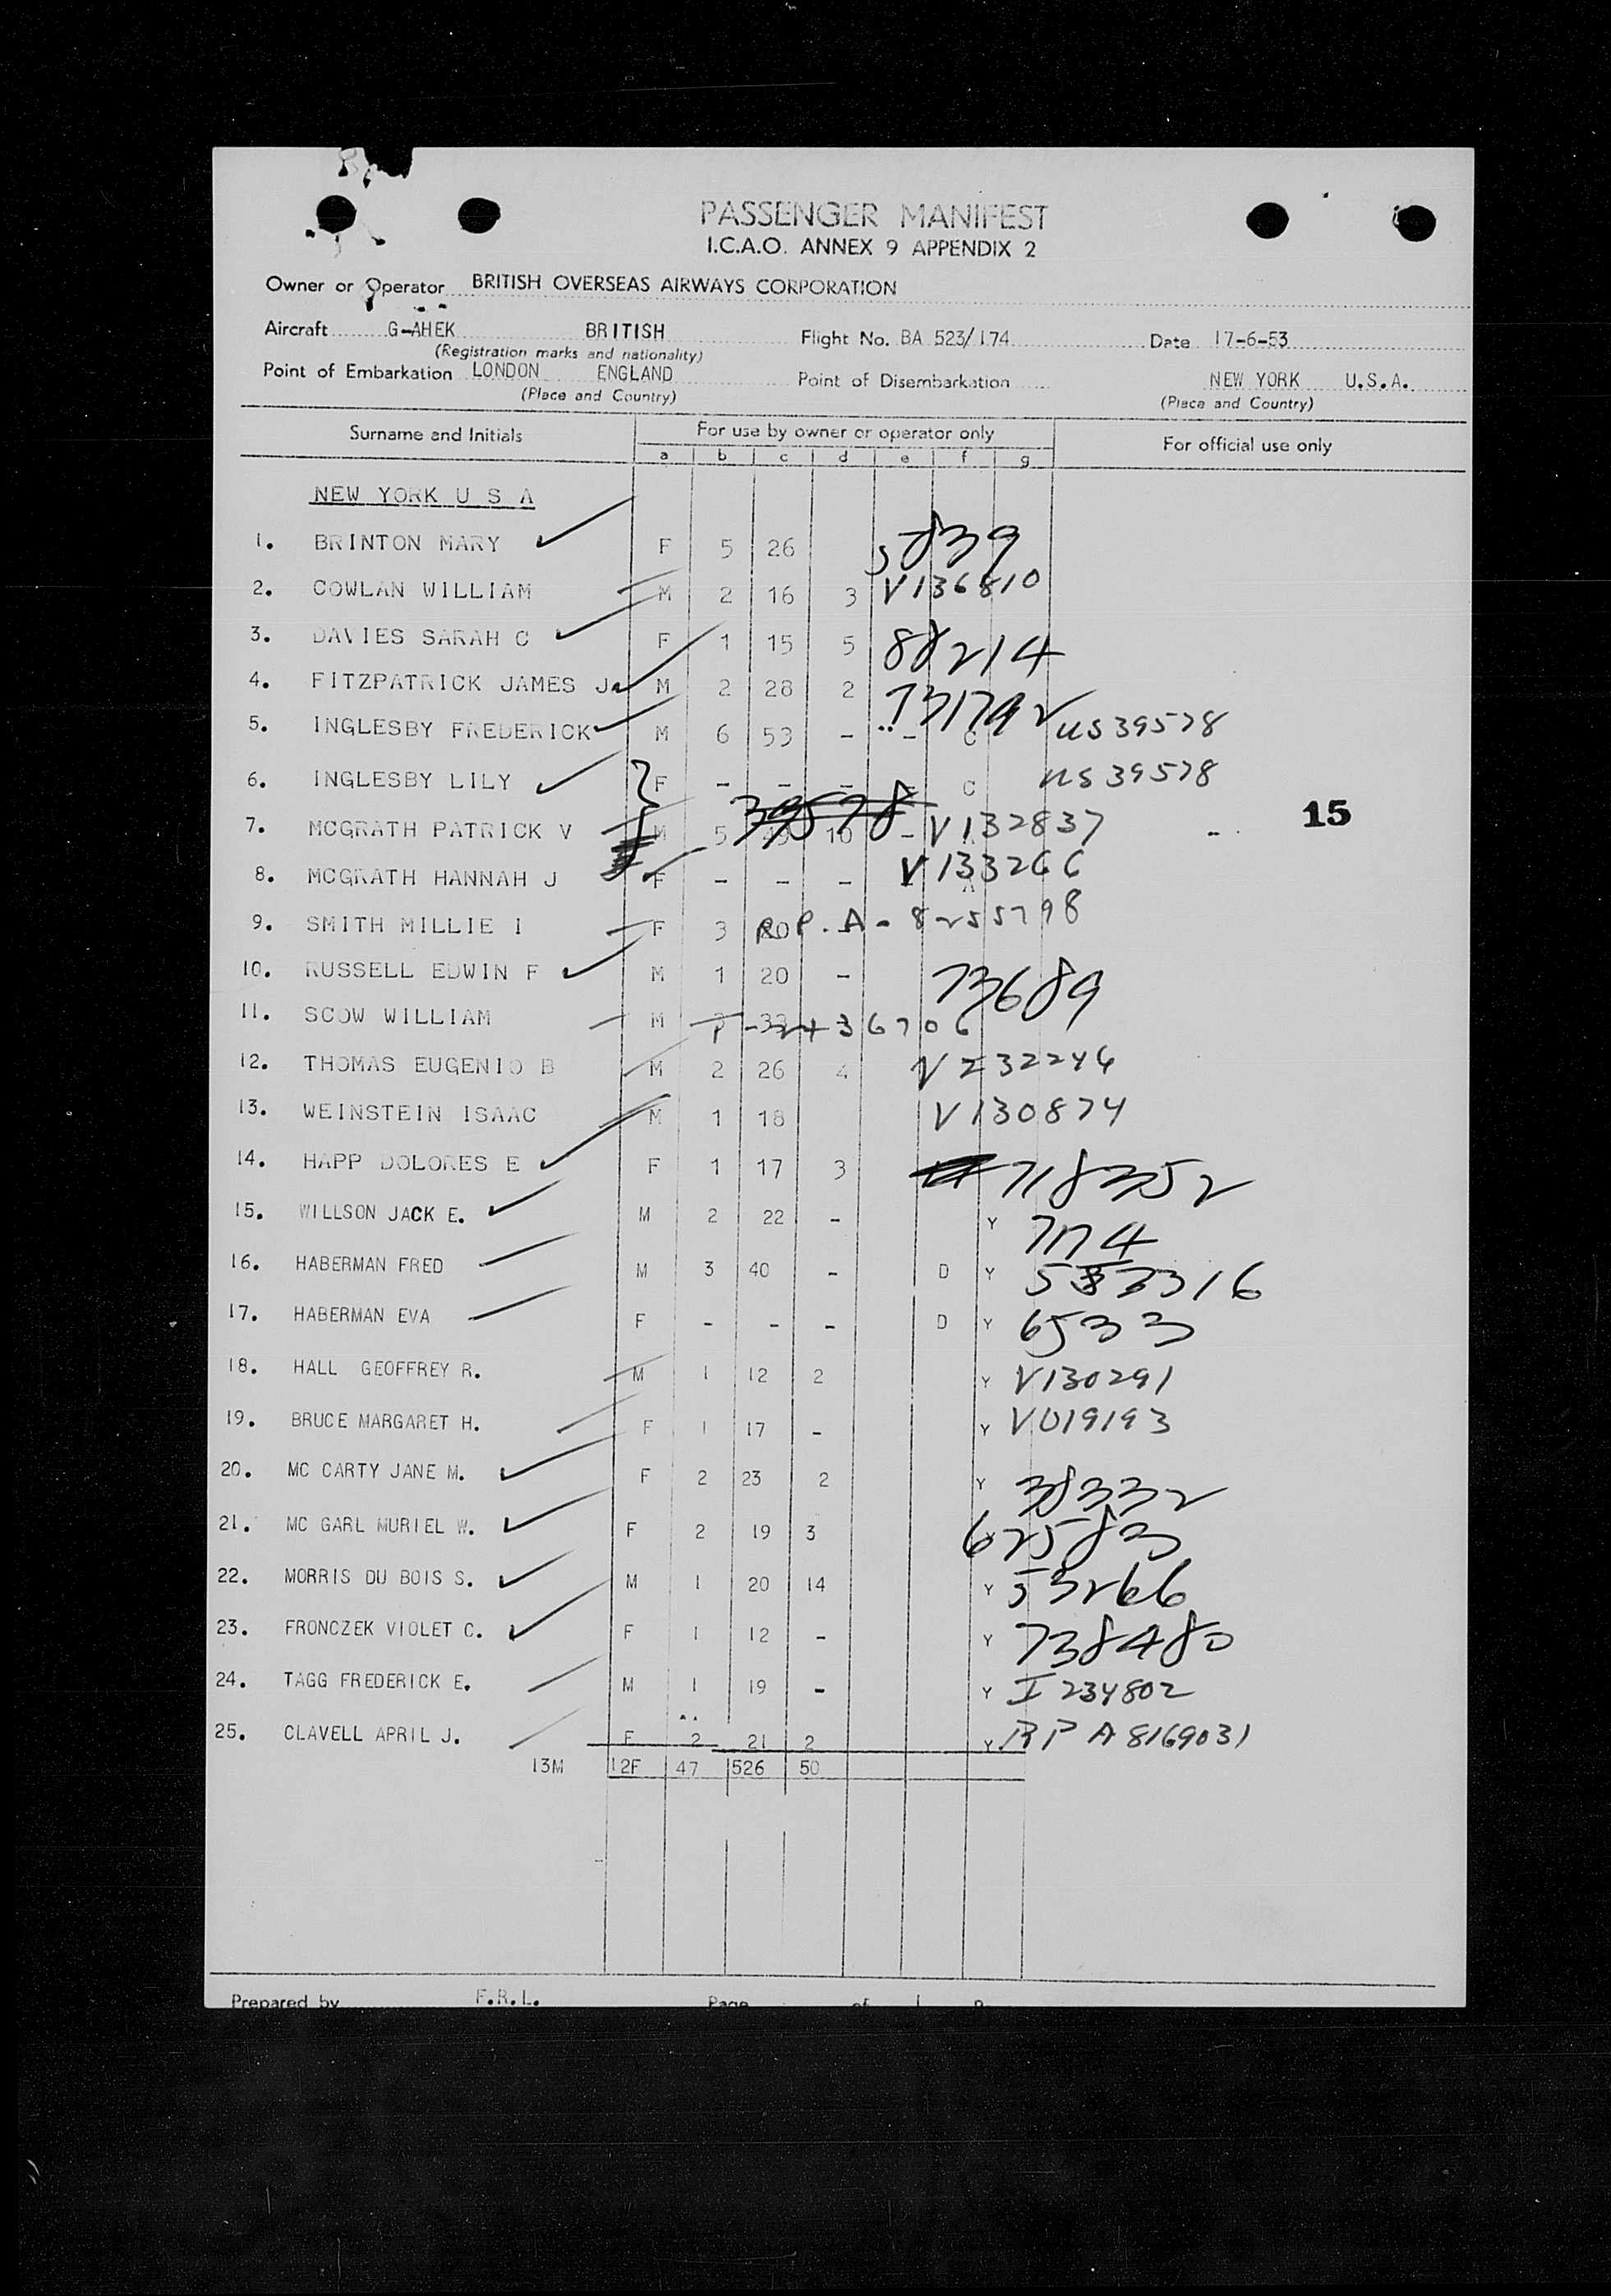 PASSENGER MANIFEST
I.C.A.O. ANNEX 9 APPENDIX 2
Owner or Operator BRITISH OVERSEAS AIRWAYS CORPORATION
Aircraft G-AHEK BRITISH Flight No. BA 523/174 Date 17-6-53
(Registration marks and nationality)
Point of Embarkation LONDON ENGLAND Point of Disembarkation NEW YORK U.S.A.
(Place and Country) (Place and Country)
Surname and Initials For use by owner or operator only For official use only
a b c d e f g
NEW YORK U S A
1. BRINTON MARY F 5 26 5839
2. COWLAN WILLIAM M 2 16 3 V136810
3. DAVIES SARAH C F 1 15 5 88214
4. FITZPATRICK JAMES J. M 2 28 2 731792
5. INGLESBY FREDERICK M 6 53 - - C US 39578
6. INGLESBY LILY F - - - - C US 39578
39578
7. MCGRATH PATRICK V M 5 49 10 - V132837
15
8. MCGRATH HANNAH J F - - - V133266
9. SMITH MILLIE I F 3 R.P.A- 8255798
10. RUSSELL EDWIN F M 1 20 - 73689
11. SCOW WILLIAM M 36706
12. THOMAS EUGENIO B M 2 26 4 V232246
13. WEINSTEIN ISAAC M 1 18 V130874
14. HAPP DOLORES E F 1 17 3 718352
15. WILLSON JACK E. M 2 22 - Y 7174
16. HABERMAN FRED M 3 40 - D Y 583316
17. HABERMAN EVA F - - - D Y 6533
18. HALL GEOFFREY R. M 1 12 2 Y V130291
19. BRUCE MARGARET H. F 1 17 - Y V019193
20. MC CARTY JANE M. F 2 23 2 Y 38332
21. MC GARL MURIEL W. F 2 19 3 62583
22. MORRIS DU BOIS S. M 1 20 14 Y 53266
23. FRONCZEK VIOLET C. F 1 12 - Y 738480
24. TAGG FREDERICK E. M 1 19 - Y I 234802
25. CLAVELL APRIL J. F 2 21 2 Y RP A 8169031
13M 12F 47 526 50
Prepared by F.R.L. Page of